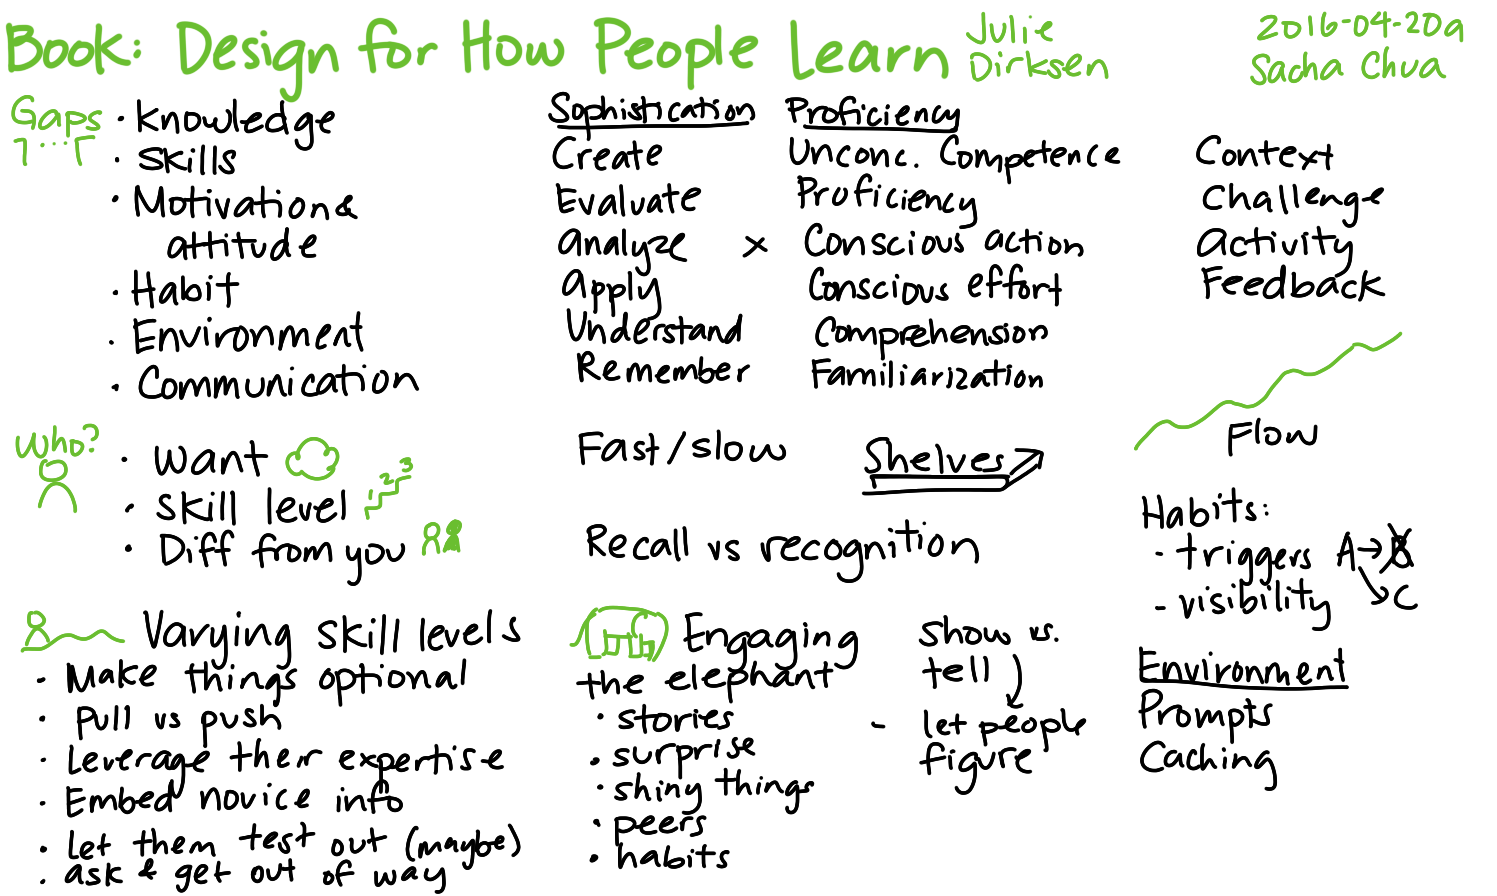 Book: Design for How People Learn
Julie
Dirksen
2016-04-20a
Sacha Chua
Gaps
• Knowledge
• Skills
• Motivation &
attitude
• Habit
• Environment
• Communication
Sophistication
Create
Evaluate
Analyze
Apply
Understand
Remember
x
Proficiency
Unconc. Competence
Proficiency
Conscious action
Conscious effort
Comprehension
Familiarization
Context
Challenge
Activity
Feedback
Flow
Who?
• Want
• Skill level
1 2 3
• Diff from you
Fast/slow
Shelves
Recall vs recognition
Habits:
- triggers A → B
- visibility C
Varying skill levels
• Make things optional
• Pull vs push
• Leverage their expertise
• Embed novice info
• Let them test out (maybe)
• ask & get out of way
Engaging
the elephant
• stories
• surprise
• shiny things
• peers
• habits
Show vs.
tell
- let people
figure
Environment
Prompts
Caching